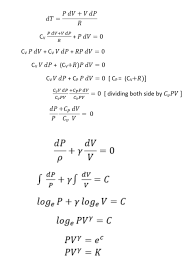 dT = \frac{P dV + V dP}{R}
C_v \frac{P dV + V dP}{R} + P dV = 0
C_v P dV + C_v V dP + RP dV = 0
C_v V dP + (C_v + R)P dV = 0
C_v V dP + C_p P dV = 0 [ C_p = (C_v + R)]
\frac{C_v V dP}{C_v PV} + \frac{C_p P dV}{C_v PV} = 0 [ dividing both side by C_v PV ]
\frac{dP}{P} + \frac{C_p}{C_v} \frac{dV}{V} = 0
\frac{dP}{ρ} + γ \frac{dV}{V} = 0
∫ \frac{dP}{P} + γ ∫ \frac{dV}{V} = C
log_e P + γ log_e V = C
log_e PV^γ = C
PV^γ = e^c
PV^γ = K